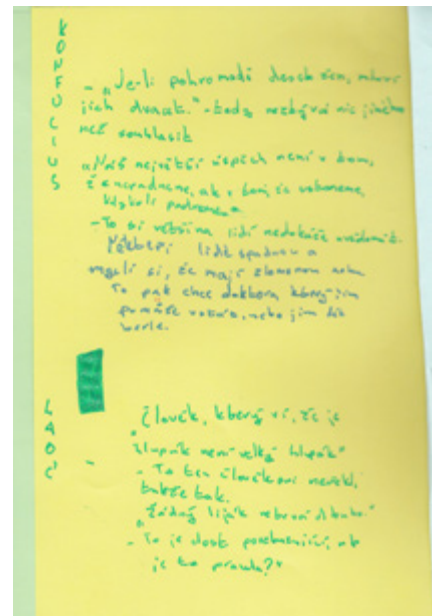 KONFUCIUS
- „Je-li pohromadě deset žen, mluví
jich dvacet." - tedy nezbývá nic jiného
než souhlasit
„Náš největší úspěch není v tom,
že nepadneme, ak v tom, že vstaneme,
kdykoli padneme"
- To si většina lidí nedokáže uvědomit.
Někteří lidé spadnou a
myslí si, že mají zlomenou nohu
To pak chce doktora, který jim
pomůže vstát, nebo jim dá
berle.
LAOC
„Člověk, který ví, že je
hlupák není velký hlupák"
- To ten člověk neřekl,
takže tak.
„Žádný liják netrvá dlouho."
- To je dost
je to pravda?"